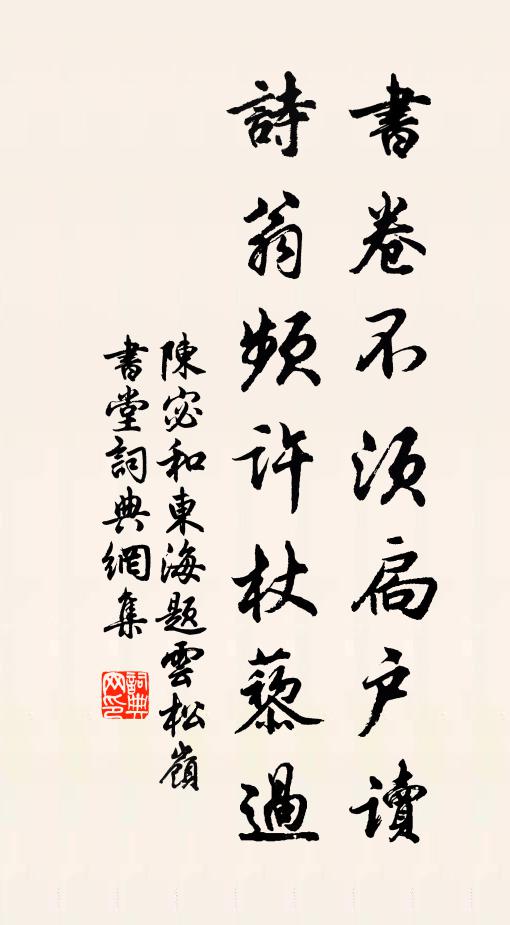 書卷不須扃戶讀
詩翁頻許杖藜過
陳宓和東海題雲松嶺
書堂詞典網集
詞典網印